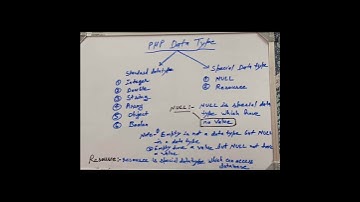 PHP Data Type
Standard datatype
① Integer
② Double
③ String
④ Array
⑤ Object
⑥ Boolean
Special Data type
① NULL
② Resource
NULL:- NULL is special data
type which have
no value
Note:- ① Empty is not a data type but NULL
is a data type
② Empty have a value but NULL not have
a value
Resource:- resource is special datatype which can access
database.